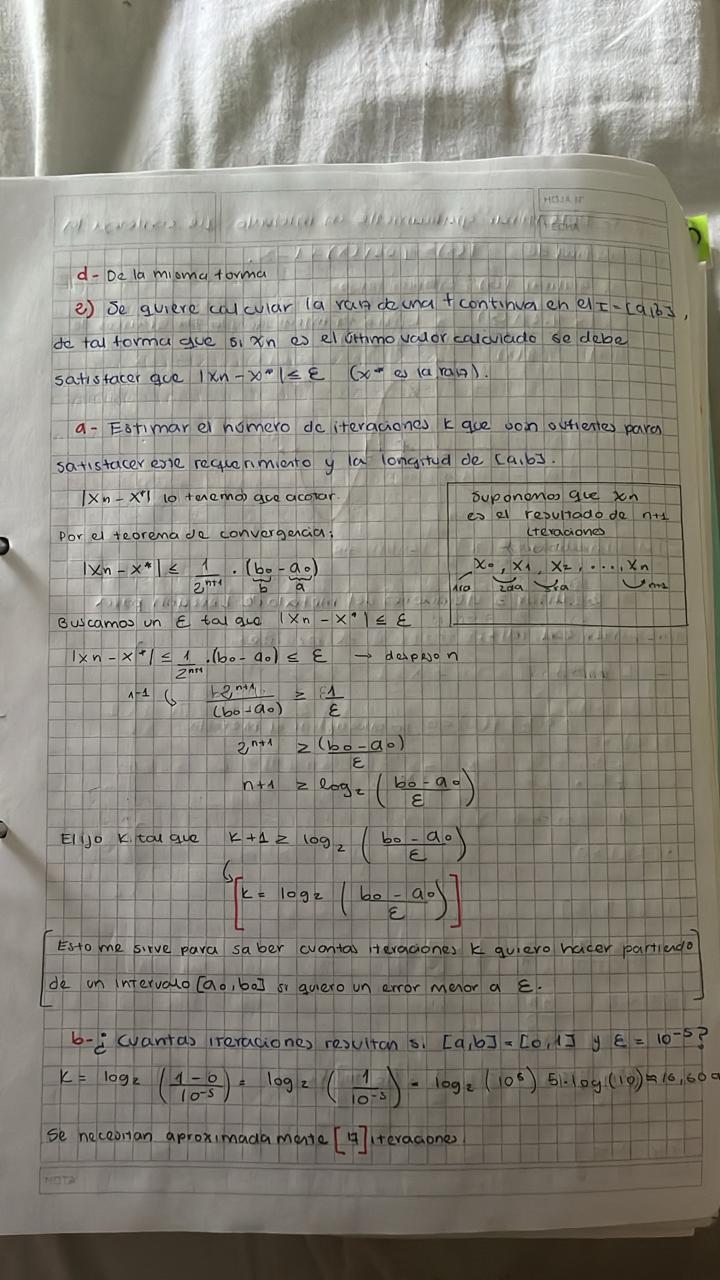 HOJA Nº
FECHA
d- De la misma forma
e) Se quiere calcular la raíz de una f continua en el I = [a,b],
de tal forma que si xn es el último valor calculado se debe
satisfacer que |xn - x*| ≤ ε (x* es la raíz).
a- Estimar el número de iteraciones k que son suficientes para
satisfacer este requerimiento y la longitud de [a,b].
|xn - x*| lo tenemos que acotar.
Por el teorema de convergencia:
|xn - x*| ≤ 1/2^(n+1) . (b0 - a0)
b a
Suponemos que xn
es el resultado de n+1
iteraciones
x0, x1, x2, ...., xn
1ra 2da 3ra n+1
Buscamos un ε tal que |xn - x*| ≤ ε
|xn - x*| ≤ 1/2^(n+1) . (b0 - a0) ≤ ε → despejo n
^-1 2^(n+1)/(b0 - a0) ≥ 1/ε
2^(n+1) ≥ (b0 - a0)/ε
n+1 ≥ log2 ((b0 - a0)/ε)
Elijo k tal que k+1 ≥ log2 ((b0 - a0)/ε)
[k = log2 ((b0 - a0)/ε)]
[Esto me sirve para saber cuantas iteraciones k quiero hacer partiendo
de un intervalo [a0, b0] si quiero un error menor a ε.]
b- ¿Cuantas iteraciones resultan si [a,b] = [0,1] y ε = 10^-5?
k = log2 ((1-0)/10^-5) = log2 (1/10^-5) = log2 (10^5) 5.log (10) ≈ 16,60
Se necesitan aproximadamente [17] iteraciones.
NOTA